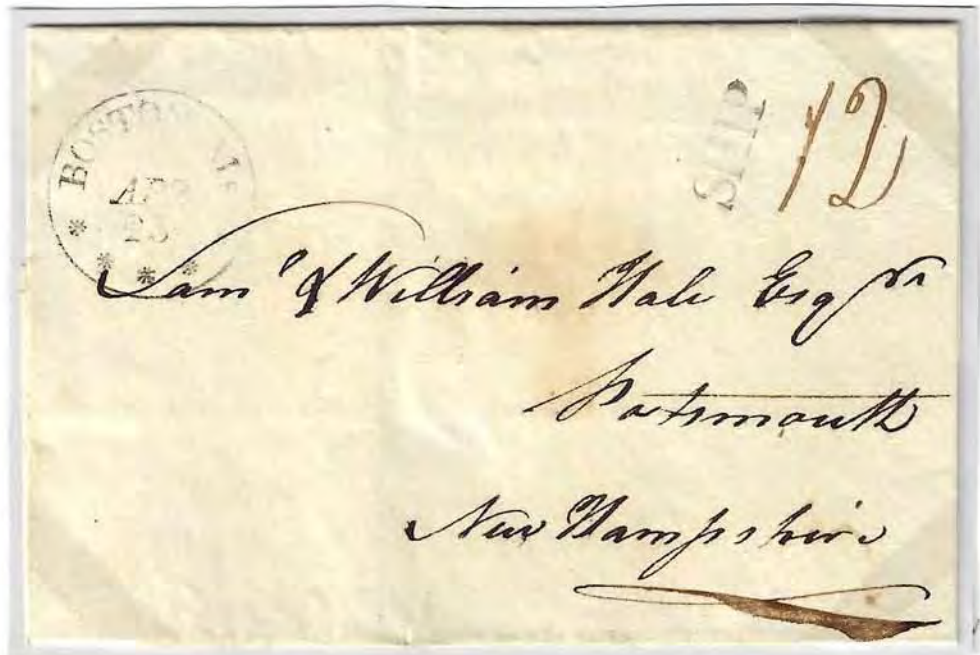 BOSTON Ms
APR
SHIP
12
Sam¹ & William Hale Esqrs
Portsmouth
New Hampshire